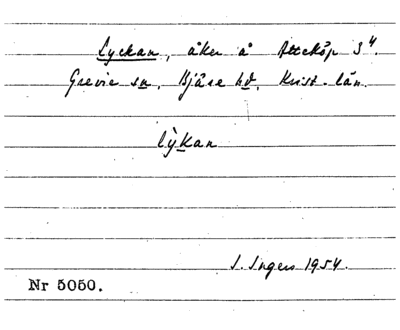 Lyckan, åker å Atteköp 3⁴
Grevie sn, Bjäre hd, Krist. län.
lỳkan
I. Ingers 1954.
Nr 5050.